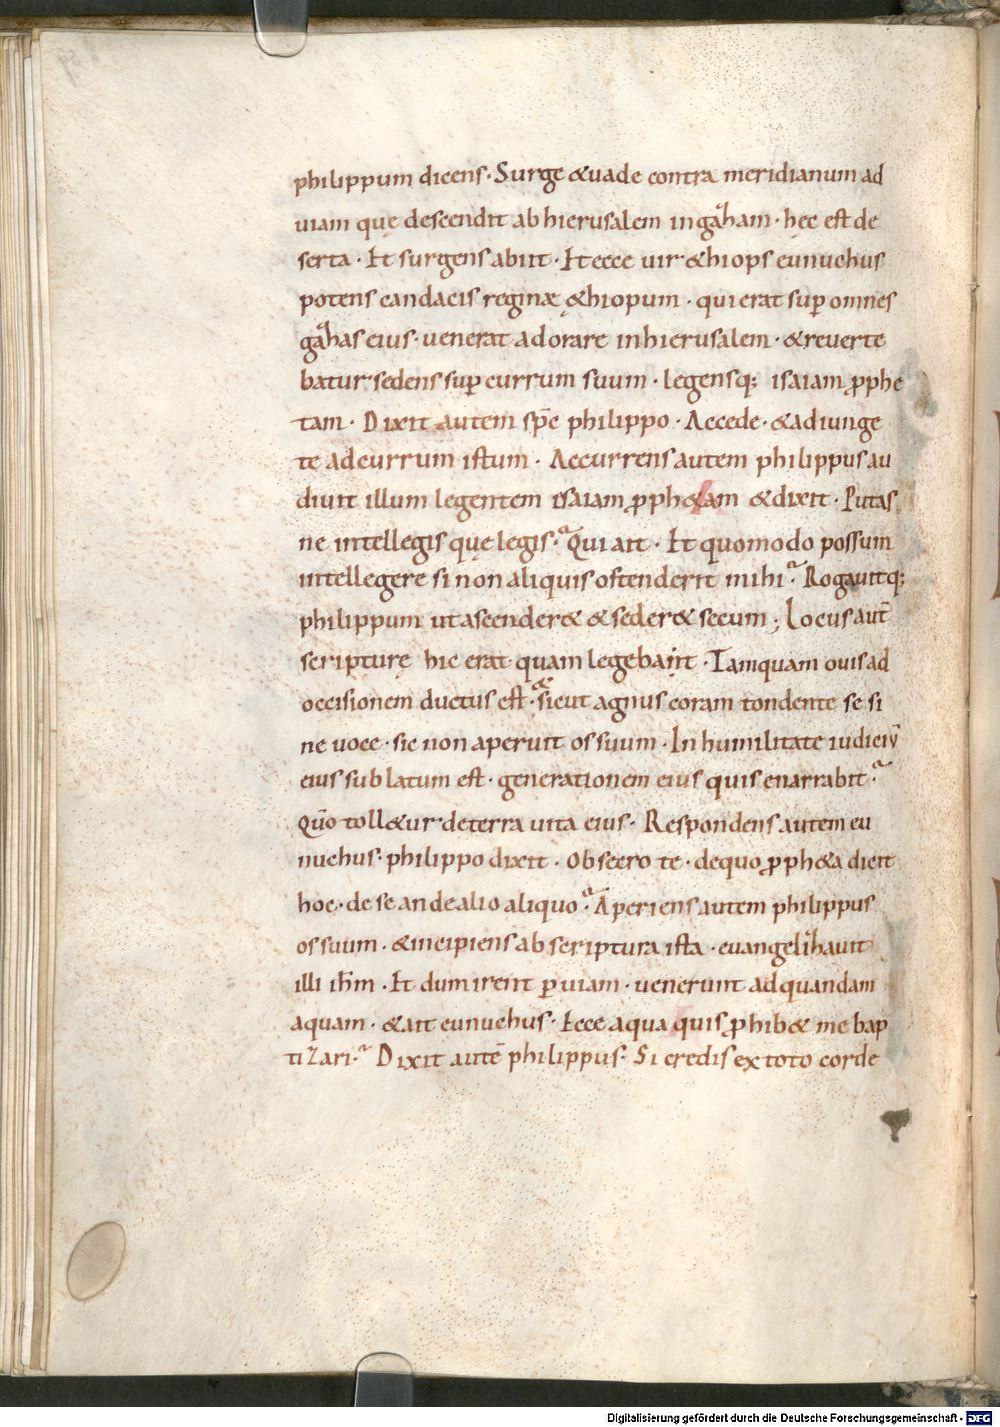 philippum dicens · Surge & uade contra meridianum ad
uiam quę descendit ab hierusalem in gazam · hęc est de
serta · Et surgens abiit · Et ecce uir &hiops eunuchus
potens candacis reginæ &hiopum · qui erat sup̄ omnes
gazas eius · uenerat adorare in hierusalem · & reuerte
batur sedens sup̄ currum suum · legensq; isaiam ꝓphe
tam · Dixit autem sp̄c philippo · Accede · & adiunge
te ad currum istum · Accurrens autem philippus au
diuit illum legentem isaiam ꝓph&am & dixit · Putas
ne intellegis quę legis · Qui ait · Et quomodo possum
intellegere si non aliquis ostenderit mihi · Rogauitq;
philippum ut ascender& & seder& secum ; Locus aut̄
scripturę hic erat quam legebat · Tamquam ouis ad
occisionem ductus est · & sicut agnus coram tondente se si
ne uoce · sic non aperuit os suum · In humilitate iudiciū
eius sublatum est · generationem eius quis enarrabit ·
Qūo toll&ur de terra uita eius · Respondens autem eu
nuchus · philippo dixit · Obsecro te · de quo ꝓph&a dicit
hoc · de se an de alio aliquo · Aperiens autem philippus
os suum · & incipiens ab scriptura ista · euangelizauit
illi ihm̄ · Et dum irent ꝑ uiam · uenerunt ad quandam
aquam · & ait eunuchus · Ecce aqua quis ꝓhib& me bap
tizari · Dixit autē philippus · Si credis ex toto corde
Digitalisierung gefördert durch die Deutsche Forschungsgemeinschaft - DFG